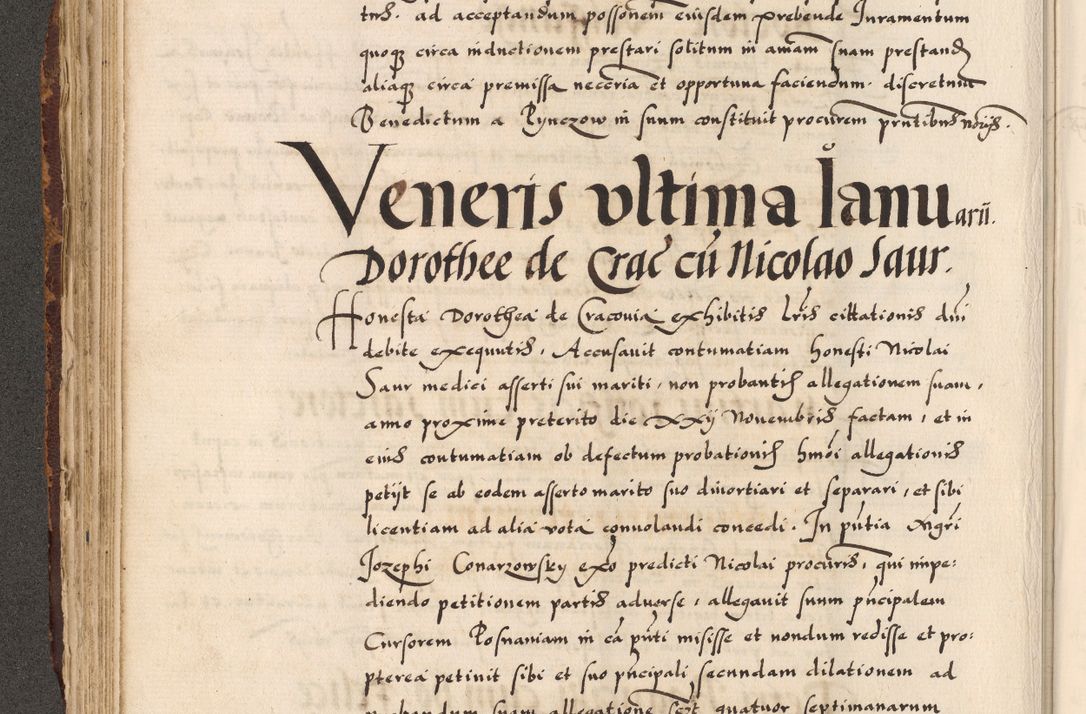 tus. ad acceptandum possonem eiusdem prebende Iuramentum
quoqz circa inductionem prestari solitum in amam suam prestandz
aliaqz circa premissa necceria et opportuna faciendum. discretum
Benedictum a Pynczow in suum constituit procurem pntibus norijs.
Veneris vltima Ianuarii.
Dorothee de Crac cũ Nicolao Saur.
Honesta Dorothea de Cracouia exhibitis lris cittationis dni
debite exequutis, Accusauit contumatiam honesti Nicolai
Saur medici asserti sui mariti, non probantis allegationem suam,
anno proxime preterito die xxij Nouembris factam, et in
eius contumatiam ob defectum probationis hmoi allegationis
petijt se ab eodem asserto marito suo diuortiari et separari, et sibi
licentiam ad alia vota conuolandi concedi. In pntia Mgri
Jozephi Conarzowsky exo predicti Nicolai procuris, qui impe:
diendo petitionem partis aduerse, allegauit suum pncipalem
Cursorem Posnaniam in cã pnti misisse et nondum redisse et pro:
pterea petiuit sibi et suo pncipali secundam dilationem ad
probandum suam allegatione scz quatuor septimanarum